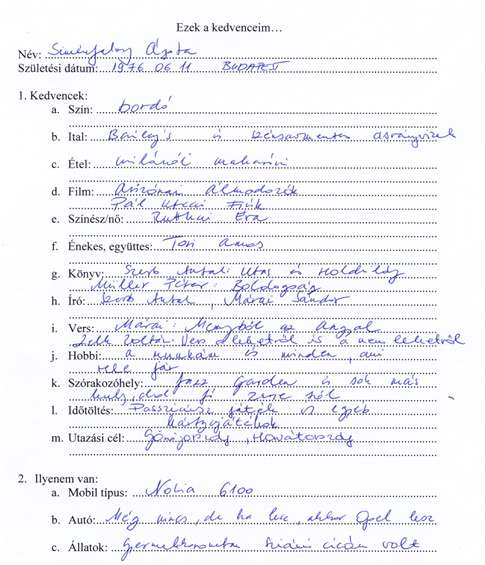 Ezek a kedvenceim…
Név: Simonfalvy Ágota
Születési dátum: 1976 06 11 BUDAPEST
1. Kedvencek:
a. Szín: bordó
b. Ital: Bailey's és szénsavmentes ásványvizek
c. Étel: milánói makaróni
d. Film: Arizónai Álmodozók
Pál utcai Fiúk
e. Színész/nő: Ruttkai Éva
f. Énekes, együttes: Tori Amos
g. Könyv: Szerb Antal: Utas és Holdvilág
Müller Péter: Boldogság
h. Író: Szerb Antal, Márai Sándor
i. Vers: Márai: Mennyből az Angyal
Zelk Zoltán: Vers a lehetről és a nem lehetről
j. Hobbi: a munkám és minden, ami
vele jár
k. Szórakozóhely: Jazz Garden és sok más
hely, ahol jó zene szól
l. Időtöltés: Passziánsz játék és egyéb
kártyajátékok
m. Utazási cél: Görögország, Horvátország
2. Ilyenem van:
a. Mobil típus: Nokia 6100
b. Autó: Még nincs, de ha lesz, akkor Opel lesz
c. Állatok: gyermekkoromban sziámi cicám volt